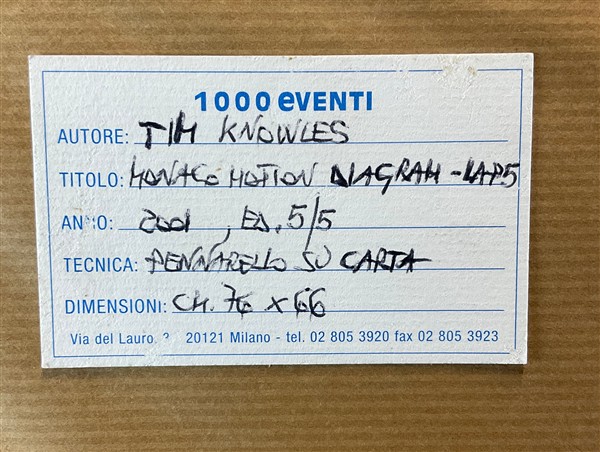 1000 eVENTI
AUTORE: TIM KNOWLES
TITOLO: MONACO MOTION DIAGRAM - LAP.5
ANNO: 2001, ED. 5/5
TECNICA: PENNARELLO SU CARTA
DIMENSIONI: CM. 76 x 66
Via del Lauro, 20121 Milano - tel. 02 805 3920 fax 02 805 3923